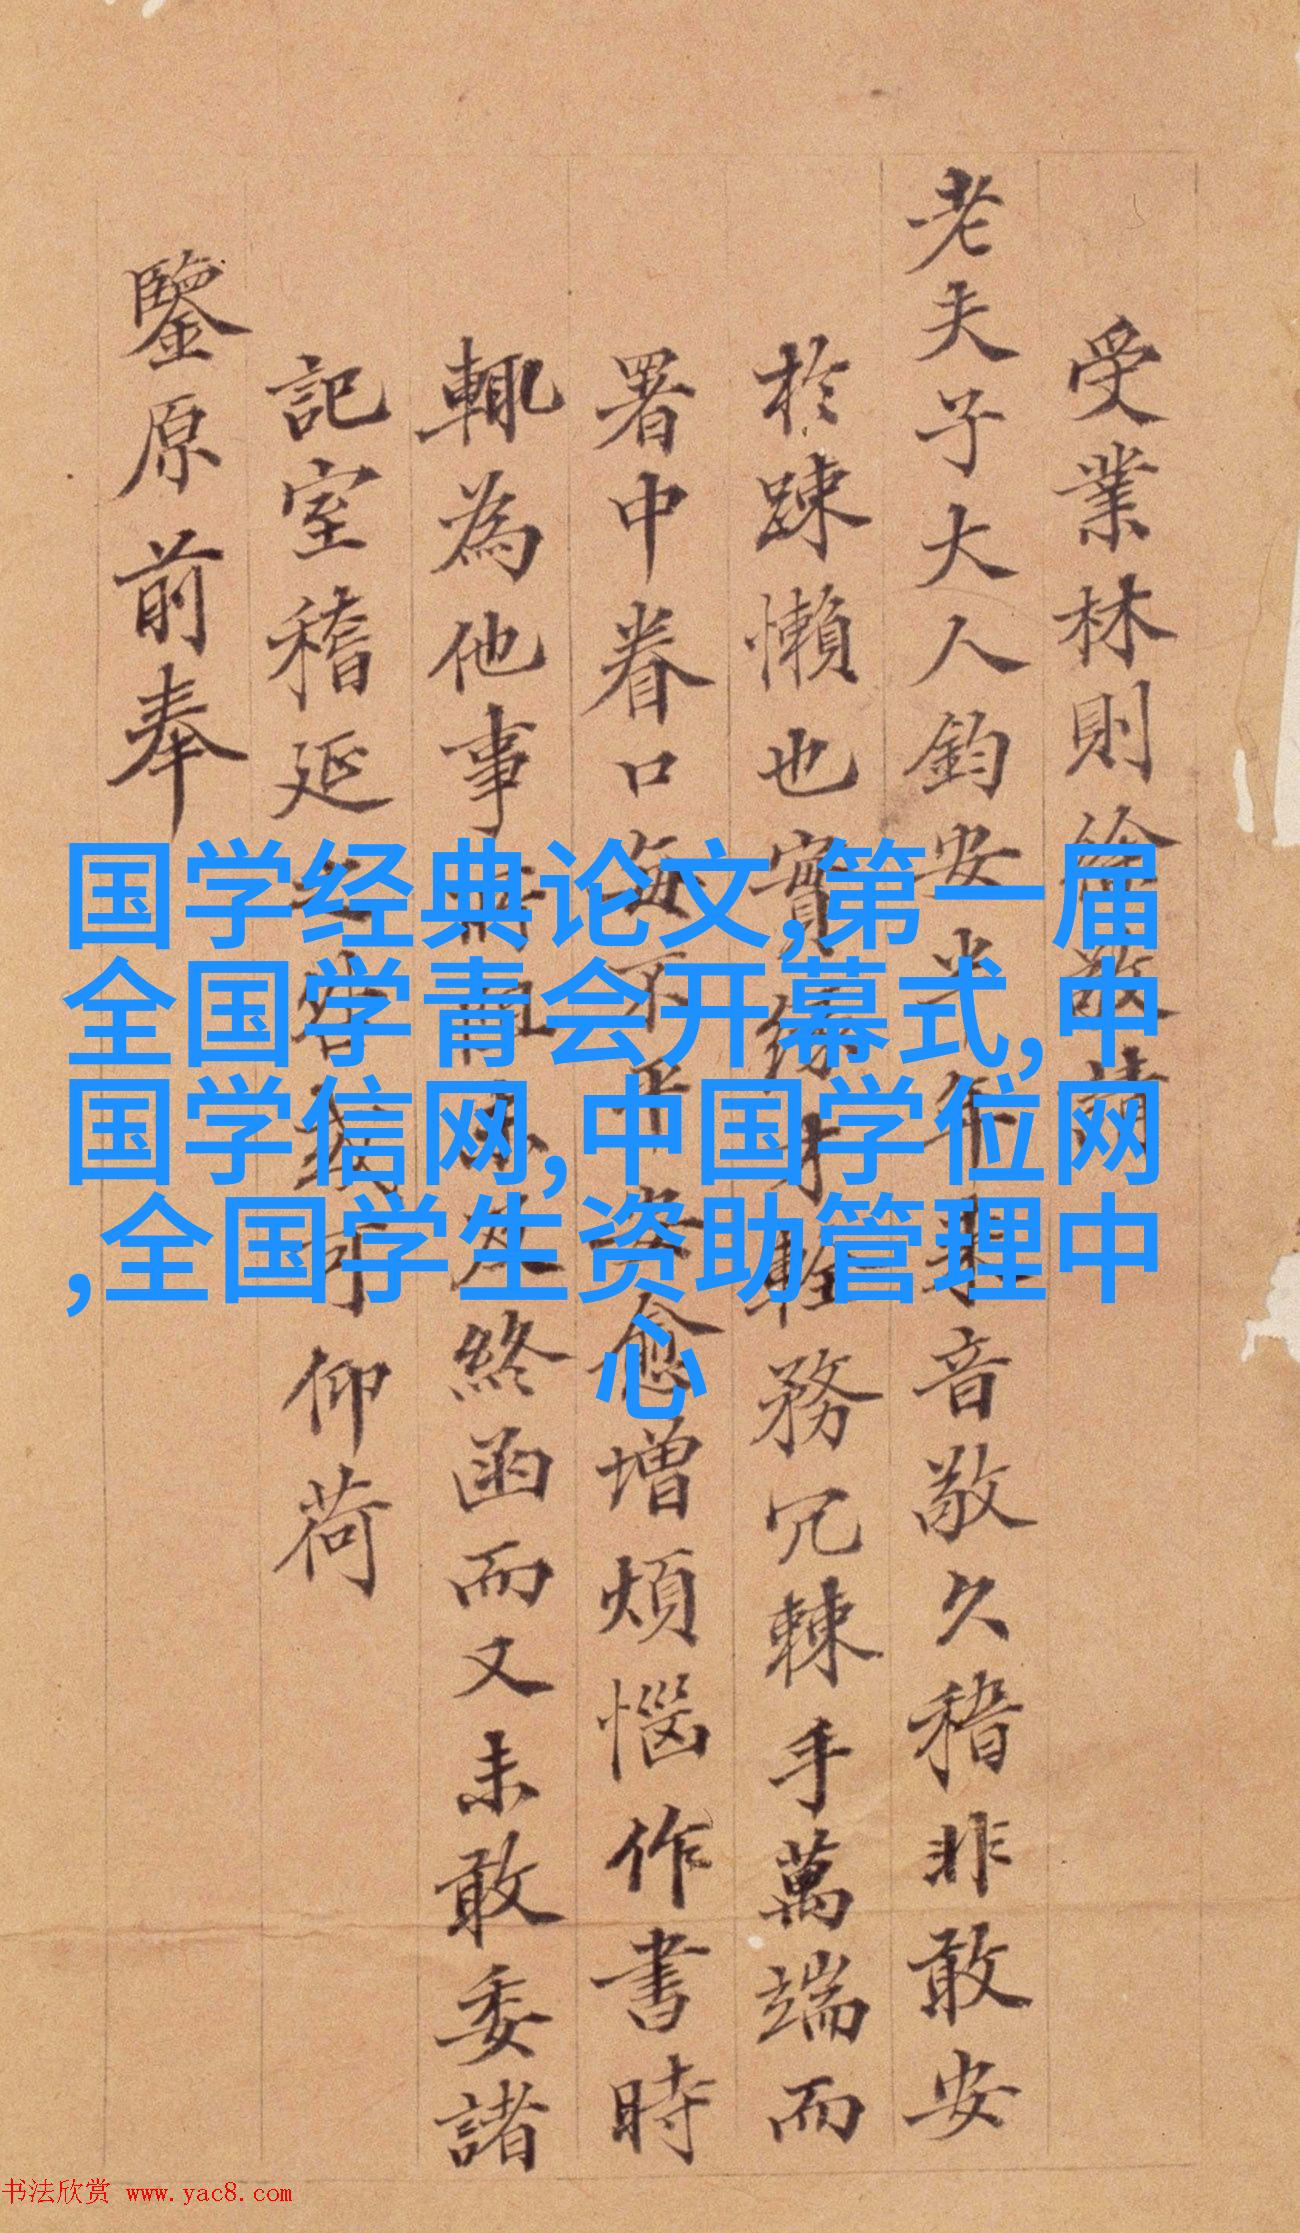 受業林則徐敬請
老夫子大人鈞安半年來音敬久稽非敢安
於踈懶也實緣才輇務冗棘手萬端而
署中眷口每不平安愈增煩惱作書時
輒為他事所
終函而又未敢委諸
記室稽延之咎
可仰荷
鑒原前奉
国学经典论文,第一届
全国学青会开幕式,中
国学信网,中国学位网
,全国学生资助管理中
心
书法欣赏 www.yac8.com